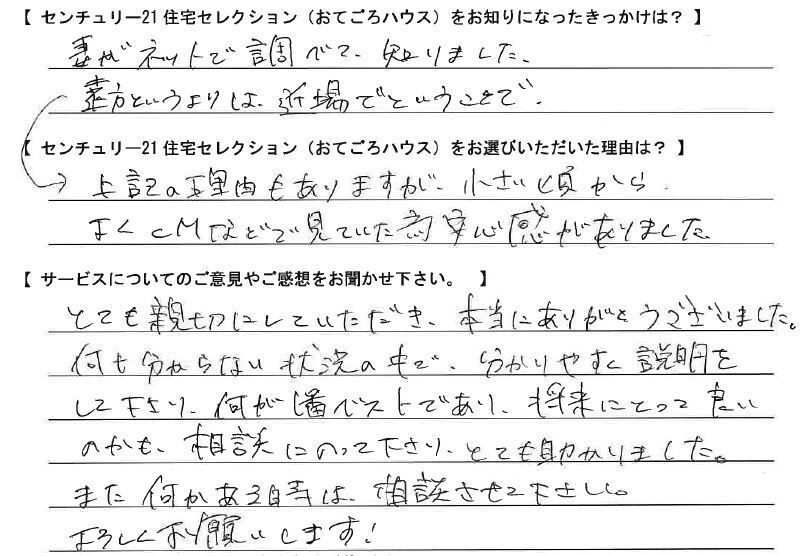 【 センチュリー21 住宅セレクション（おてごろハウス）をお知りになったきっかけは？ 】
妻がネットで調べて、知りました。
遠方というよりは、近場でということで。
【 センチュリー21 住宅セレクション（おてごろハウス）をお選びいただいた理由は？ 】
→ 上記の理由もありますが、小さい頃から
よくCMなどで見ていた為安心感がありました。
【 サービスについてのご意見やご感想をお聞かせ下さい。 】
とても親切にしていただき、本当にありがとうございました。
何も分からない状況の中で、分かりやすく説明を
して下さり、何が1番ベストであり、将来にとって良い
のかも、相談にのって下さり、とても助かりました。
また何かある時は、相談させて下さい。
よろしくお願いします！